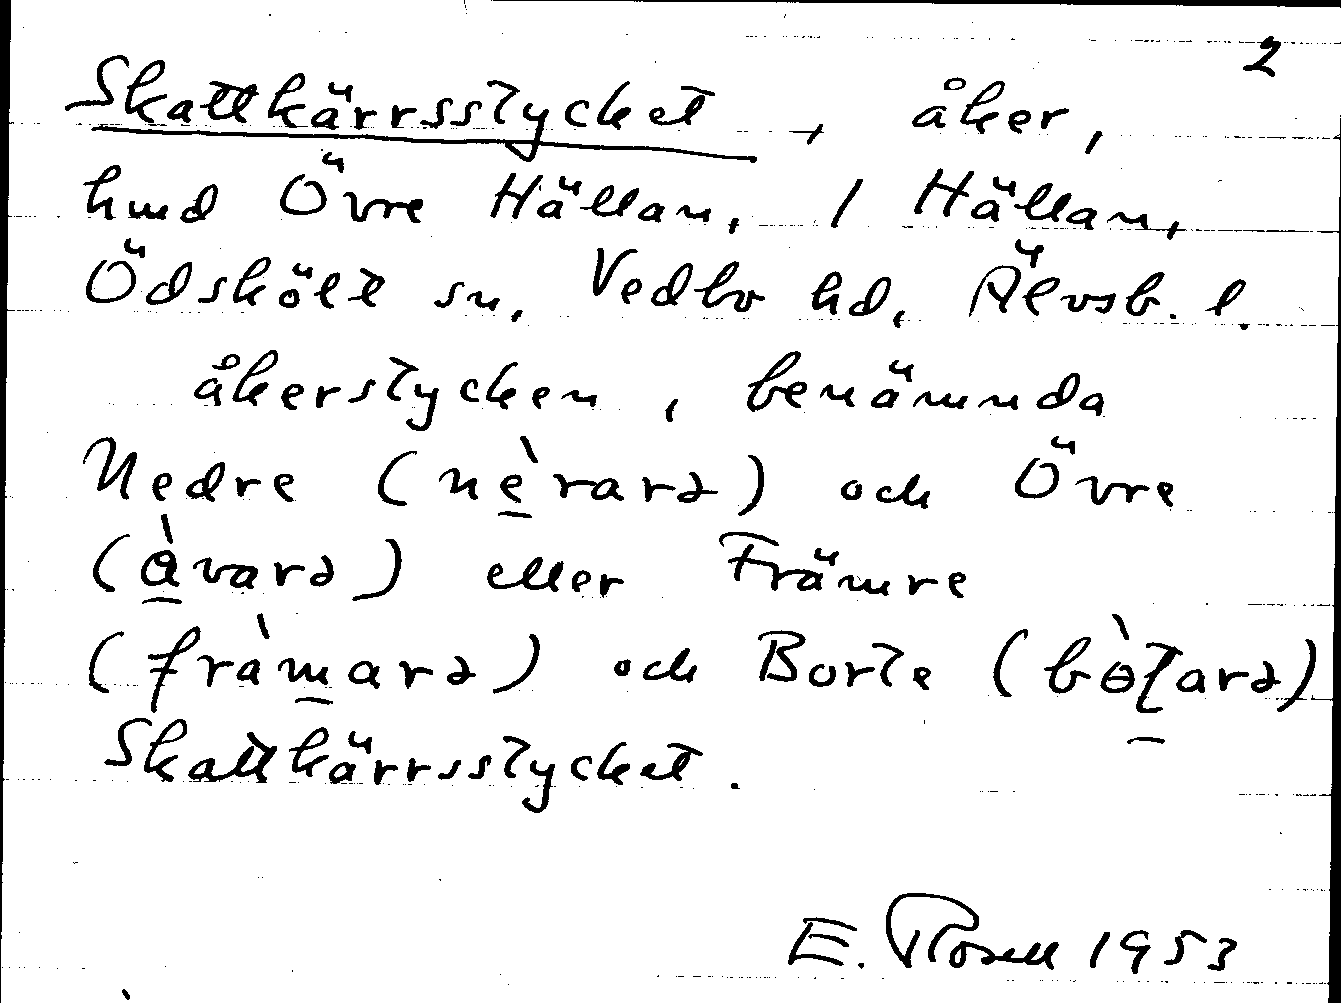 2
Skattkärrsstycket, åker,
hmd Övre Hällan, 1 Hällan,
Ödskölt sn, Vedbo hd, Älvsb. l.
åkerstycken, benämnda
Nedre (nè̠rarə) och Övre
(ɵ̠̀varə) eller Främre
(fràm̠arə) och Borte (bɵ̀ʈ̠arə)
Skattkärrsstycket.
E. Rosell 1953